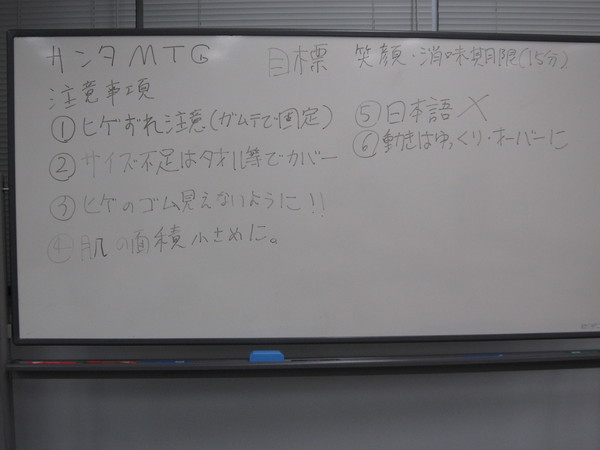 サンタMTG 目標 笑顔・消味期限(15分)
注意事項
①ヒゲずれ注意(ガムテで固定)
②サイズ不足はタオル等でカバー
③ヒゲのゴム見えないように!!
④肌の面積小さめに。
⑤日本語×
⑥動きはゆっくり・オーバーに